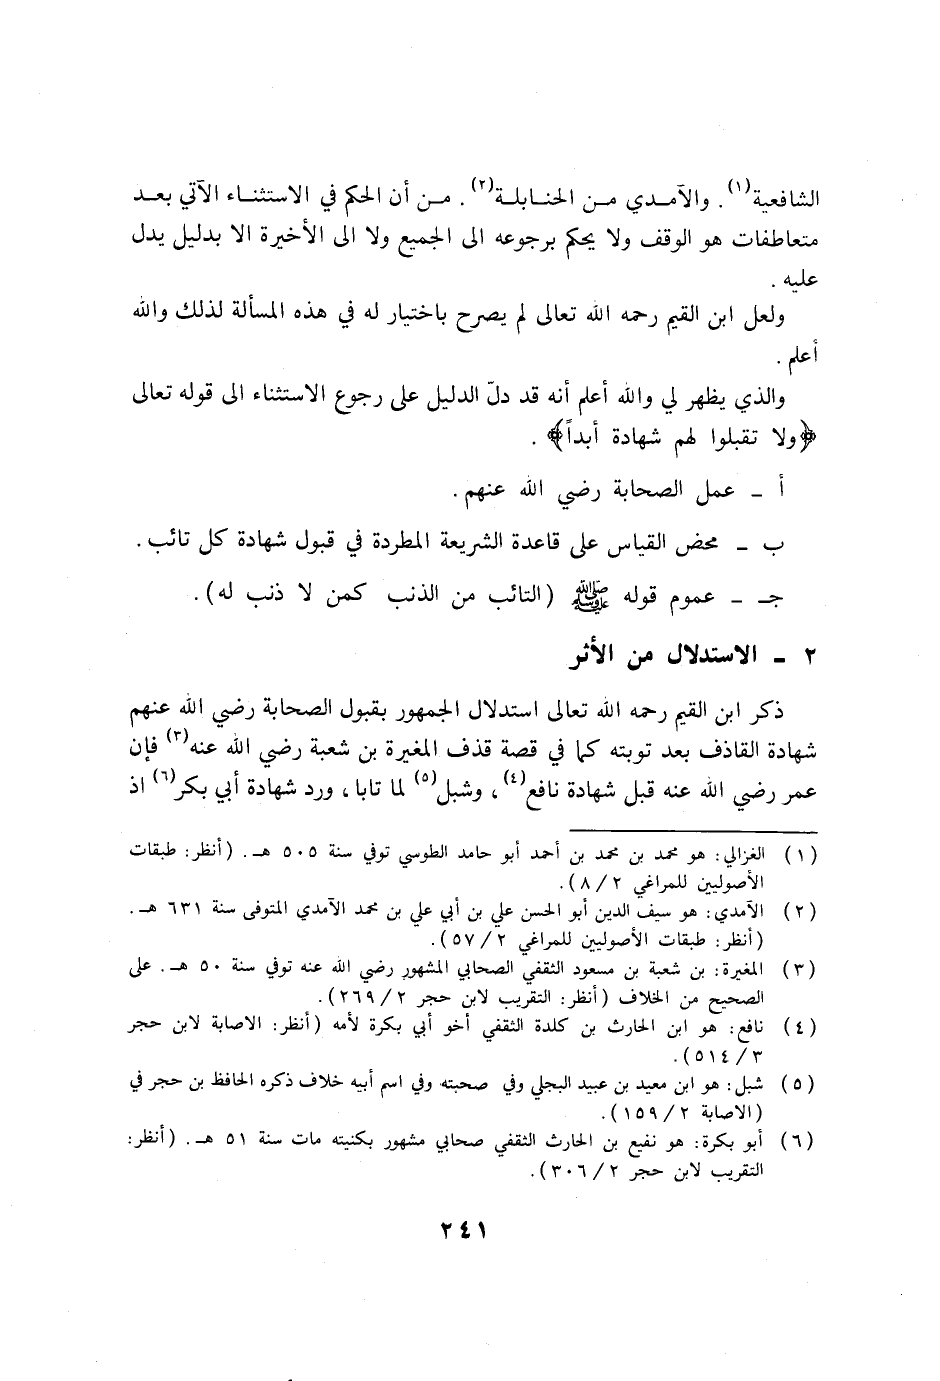 الشافعية(١). والآمدي من الحنابلة(٢). من أن الحكم في الاستثناء الآتي بعد
متعاطفات هو الوقف ولا يحكم برجوعه الى الجميع ولا الى الأخيرة الا بدليل يدل
عليه .
ولعل ابن القيم رحمه الله تعالى لم يصرح باختيار له في هذه المسألة لذلك والله
أعلم .
والذي يظهر لي والله أعلم أنه قد دلّ الدليل على رجوع الاستثناء الى قوله تعالى
﴿ولا تقبلوا لهم شهادة أبداً﴾ .
أ ـ عمل الصحابة رضي الله عنهم .
ب ـ محض القياس على قاعدة الشريعة المطردة في قبول شهادة كل تائب .
جـ ـ عموم قوله ﷺ (التائب من الذنب كمن لا ذنب له) .
٢ ـ الاستدلال من الأثر
ذكر ابن القيم رحمه الله تعالى استدلال الجمهور بقبول الصحابة رضي الله عنهم
شهادة القاذف بعد توبته كما في قصة قذف المغيرة بن شعبة رضي الله عنه(٣) فإن
عمر رضي الله عنه قبل شهادة نافع(٤)، وشبل(٥) لما تابا، ورد شهادة أبي بكر(٦) اذ
(١) الغزالي: هو محمد بن محمد بن أحمد أبو حامد الطوسي توفي سنة ٥٠٥ هـ. (أنظر: طبقات
الأصوليين للمراغي ٢/ ٨).
(٢) الآمدي: هو سيف الدين أبو الحسن علي بن أبي علي بن محمد الآمدي المتوفى سنة ٦٣١ هـ.
(أنظر: طبقات الأصوليين للمراغي ٢/ ٥٧).
(٣) المغيرة: بن شعبة بن مسعود الثقفي الصحابي المشهور رضي الله عنه توفي سنة ٥٠ هـ. على
الصحيح من الخلاف (أنظر: التقريب لابن حجر ٢/ ٢٦٩).
(٤) نافع: هو ابن الحارث بن كلدة الثقفي أخو أبي بكرة لأمه (أنظر: الاصابة لابن حجر
٣/ ٥١٤).
(٥) شبل: هو ابن معيد بن عبيد البجلي وفي صحبته وفي اسم أبيه خلاف ذكره الحافظ بن حجر في
(الاصابة ٢/ ١٥٩).
(٦) أبو بكرة: هو نفيع بن الحارث الثقفي صحابي مشهور بكنيته مات سنة ٥١ هـ. (أنظر:
التقريب لابن حجر ٢/ ٣٠٦).
٢٤١